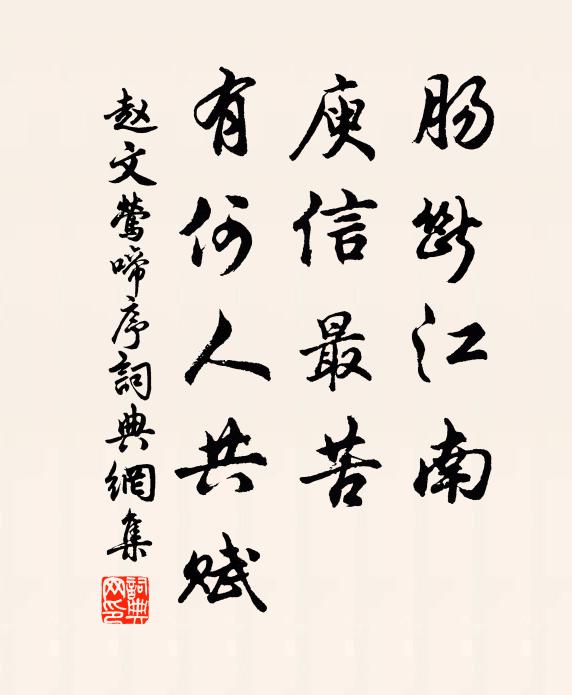 肠断江南
庾信最苦
有何人共赋
赵文莺啼序詞典網集
詞典网印